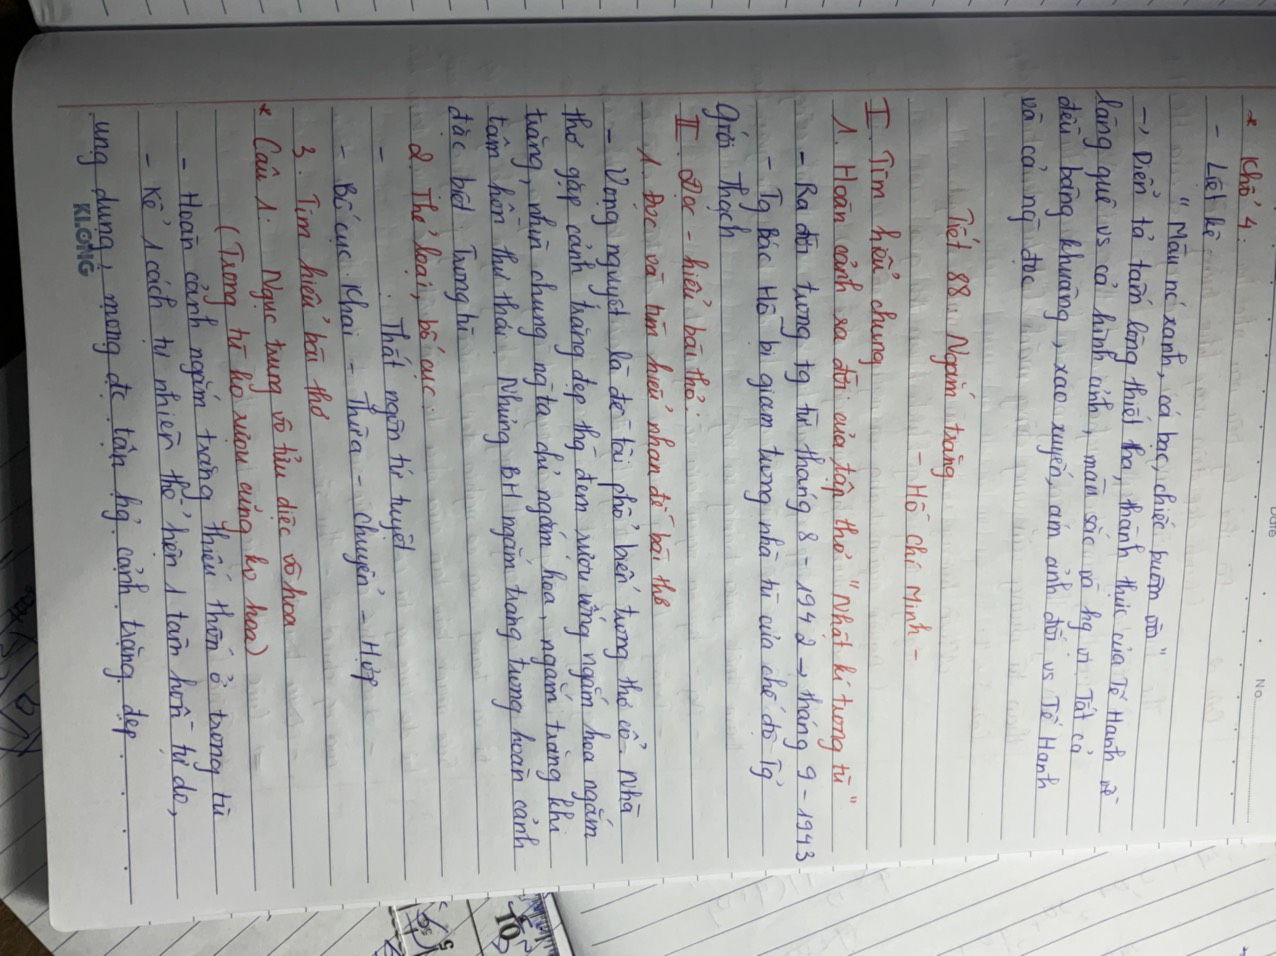 Date
No.
* Khổ 4:
- Liệt kê
" Màu nc xanh, cá bạc, chiếc buồm vôi "
-> Diễn tả tấm lòng thiết tha, thành thực của Tế Hanh về
làng quê vs cả hình ảnh, màu sắc và hg vị. Tất cả
đều bâng khuâng, xao xuyến, ám ảnh đối vs Tế Hanh
và cả ng đọc
Tiết 88. Ngắm trăng
- Hồ Chí Minh -
I. Tìm hiểu chung
1. Hoàn cảnh ra đời của tập thơ "Nhật kí trong tù"
- Ra đời trong tg từ tháng 8 - 1942 -> tháng 9 - 1943
- Tg Bác Hồ bị giam trong nhà tù của chế độ Tg
giới Thạch
II. Đọc - hiểu bài thơ:
1. Đọc và tìm hiểu nhan đề bài thơ
- Vọng nguyệt là đề tài phổ biến trong thơ cổ. Nhà
thơ gặp cảnh trăng đẹp thg đem rượu uống ngắm hoa ngắm
trăng, nhìn chung ng ta chỉ ngắm hoa, ngắm trăng khi
tâm hồn thư thái. Nhưng BH ngắm trăng trong hoàn cảnh
đặc biệt: Trong tù
2. Thể loại, bố cục:
- : Thất ngôn tứ tuyệt
- Bố cục: Khai - Thừa - Chuyển - Hợp
3. Tìm hiểu bài thơ
* Câu 1: Ngục trung vô tửu diệc vô hoa
(Trong tù ko rượu cũng ko hoa)
- Hoàn cảnh ngắm trăng thiếu thốn ở trong tù
- Kể 1 cách tự nhiên thể hện 1 tâm hồn tự do,
ung dung, mong đc tận hg cảnh trăng đẹp
KLONG
10
5